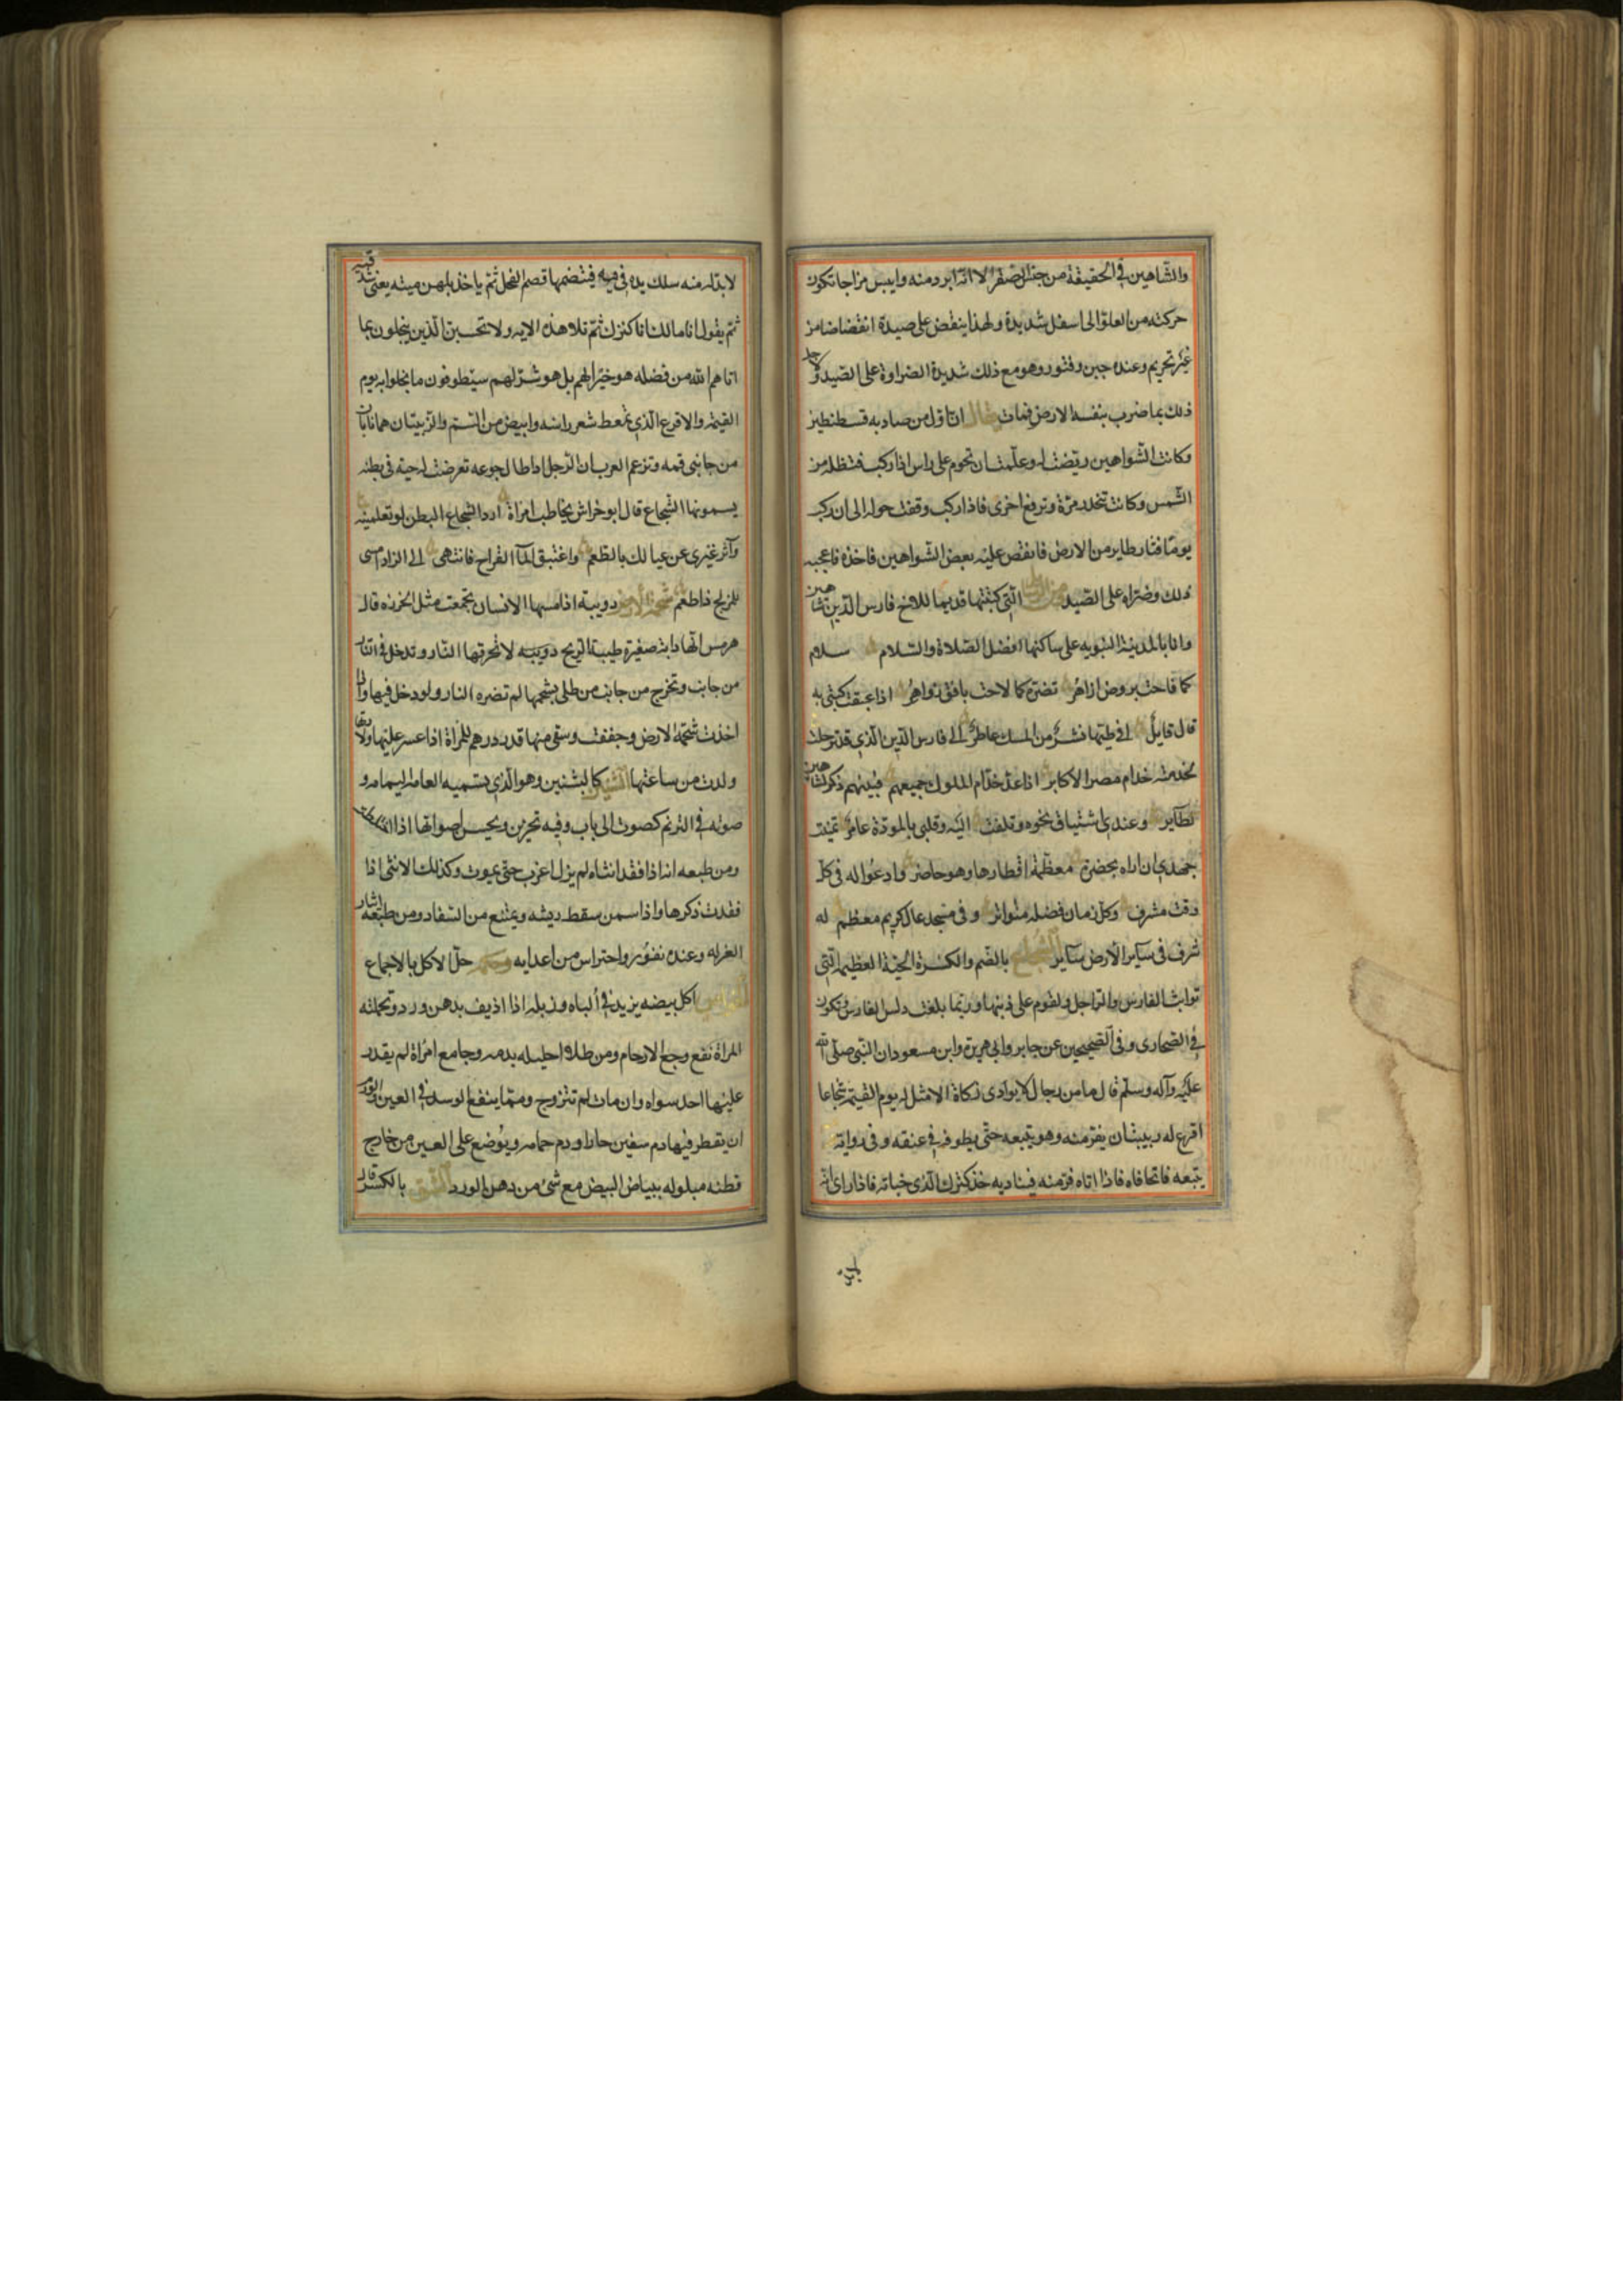 والشاهين في الحقيقة من جنس الصقر الا انه ابرد منه وايبس مزاجا تكون
حركته من العلو الى اسفل شديدة ولهذا ينقض على صيدة انقضاضا من
غير تحريم وعنده جبن وفتور وهو مع ذلك شديدة الضراوة على الصيد ولاجل
ذلك بما ضرب بنفسه الارض فمات قال ان اول من صاد به قسطنطين
وكانت الشواهين ريضت له وعلمت ان تحوم على راس اذا ركب فتظله من
الشمس وكانت تنحدر مرة وترفع اخرى فاذا ركب وقفت حوله الى ان ركب
يوما فثار طاير من الارض فانقض عليه بعض الشواهين فاخذه فاعجبه
ذلك وضراه على الصيد التي كتبتها قديما للاخ فارس الدين شاهين
وانا بالمدينة النبويه على ساكنها افضل الصلاة والسلام سلام
كما فاحت بروض ازاهر تضئ كما لاحت بافق زواهر اذا عبقت كتبي به
قال قايل افي طيها نشر من المسك عاطر الى فارس الدين الذي قد ترحلت
لخدمته خدام مصر الاكابر اذا عد خدام الملوك جميعهم فبينهم ذكر لشاهين
طاير وعندي اشتياق نحوه وتلفت اليه وقلبي بالمودة عامر تمنيت
جهدي ان اراه بحضرة معظمة اقطارها وهو حاضر وادعوا له في كل
وقت مشرف وكل زمان فضله متواتر وفي مسجد عال كريم معظم له
شرف في ساير الارض ساير الشجاع بالضم والكسرة الحية العظيمة التي
تواثب الفارس والراجل وتقوم على ذنبها وربما بلغت راس الفارس وتكون
في الصحارى وفي الصحيحين عن جابر وابي هريرة وابن مسعود ان النبي صلى الله
عليه وآله وسلم قال ما من رجال لا يوادى زكاة الا مثل له يوم القيمة شجاعا
اقرع له زبيبتان يفر منه وهو يتبعه حتى يطوفه في عنقه وفي رواية
يتبعه فاتحا فاه فاذا اتاه فر منه فيناديه خذ كنزك الذي خباته فاذا راى ان
لا بد له منه سلك يده في فيه فيقضمها قضم الفحل ثم ياخذ بلهزميته يعني شدقيه
ثم يقول انا مالك انا كنزك ثم تلا هذه الايه ولا تحسبن الذين يبخلون بما
اتاهم الله من فضله هو خيرا لهم بل هو شر لهم سيطوقون ما بخلوا به يوم
القيمة والاقرع الذي تمعط شعر راسه وابيض من السم والزبيبتان هما نابان
من جانبي فمه وتزعم العرب ان الرجل اذا طال جوعه تعرضت له حية في بطنه
يسمونها الشجاع قال ابو خراش يخاطب امراة اردا الشجاع البطن لو تعلمينه
وآثر غيري عن عيالك بالطعم واغتبق الماء القراح فانتهى الى الزاد امسى
للمزلج ذا طعم شحمة الارض دويبة اذا مسها الانسان تجمعت مثل الخرزه قال
هرمس انها دابة صغيرة طيبة الريح دويبه لا تحرقها النار وتدخل في النار
من جانب وتخرج من جانب من طلى بشحمها لم تضره النار ولو دخل فيها وان
اخذت شحمة الارض وجففت وسقى منها قدر درهم للمراة اذا عسر عليها ولادتها
ولدت من ساعتها الشنين كالبشنين وهو الذي يسميه العامة اليمامه و
صوته في الترنم كصوت الرباب وفيه تحزين ويحسن اصواتها اذا
ومن طبعه انه اذا فقد انثاه لم يزل اعزب حتى يموت وكذلك الانثى اذا
فقدت ذكرها واذا سمن سقط ريشه ويمتنع من السفاد ومن طبعه ايثار
العزله وعنده نفور واحتراس من اعدايه وحكمه حل الاكل بالاجماع
الخواص اكل بيضه يزيد في الباه وزبله اذا اذيف بدهن ورد وتحملته
المراة نفع وجع الارحام ومن طلا احليله بدمه وجامع امراة لم يقدر
عليها احد سواه وان مات لم تتزوج ومما ينفع في العين والورم
ان يقطر فيها دم سفين حارا ودم حمامه ويوضع على العين من خارج
قطنه مبلوله ببياض البيض مع شئ من دهن الورد الشق بالكسر قال